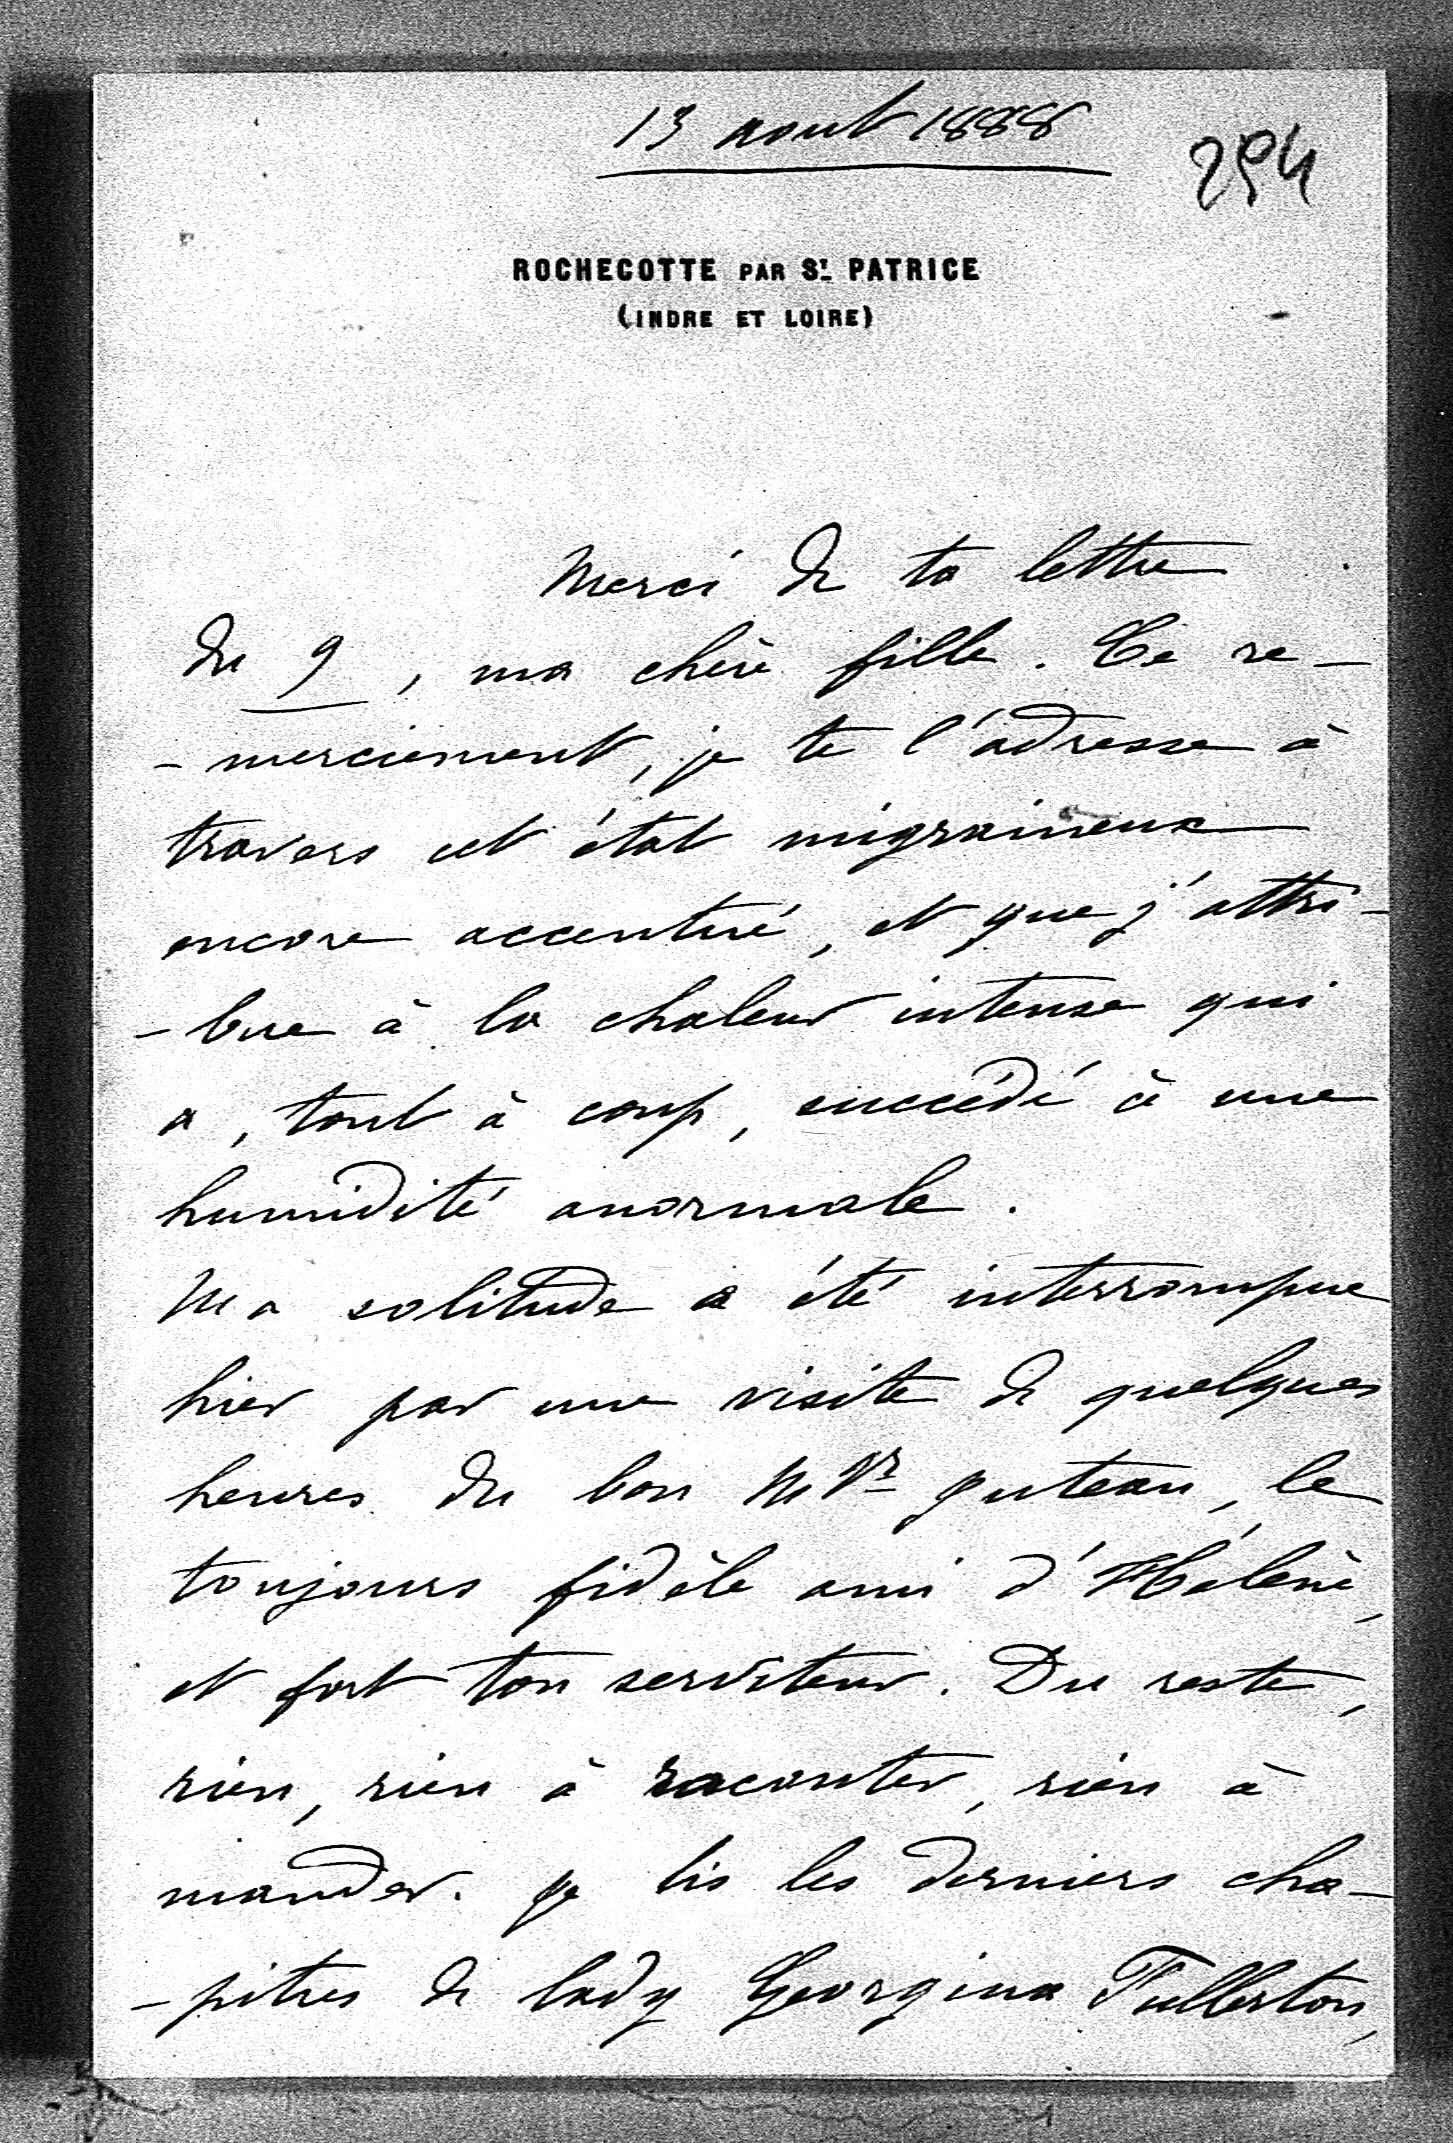 13 aout 1888
294
ROCHECOTTE PAR ST. PATRICE
(INDRE ET LOIRE)
Merci de ta lettre
du 9, ma chère fille. Ce re-
-merciement, je te l'adresse à
travers cet état migraineux
encore accentué, et que j'attri-
-bue à la chaleur intense qui
a, tout à coup, succédé à une
humidité anormale.
Ma solitude a été interrompue
hier par une visite de quelques
heures du bon Mgr Juteau, le
toujours fidèle ami d'Hélène,
et fort ton serviteur. Du reste,
rien, rien à raconter, rien à
mander. je lis les derniers cha-
-pitres de lady Georgina Fullerton,